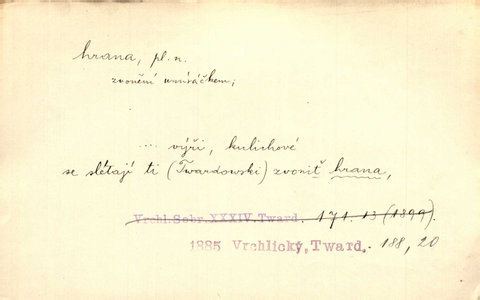 hrana, pl. n.
zvonění umíráčkem;
... výři, kulichové
se slétají ti (Twardowski) zvoniť hrana,
Vrchl.Sebr.XXXIV.Tward. 171. 13 (1899).
1885 Vrchlický,Tward. 188, 20